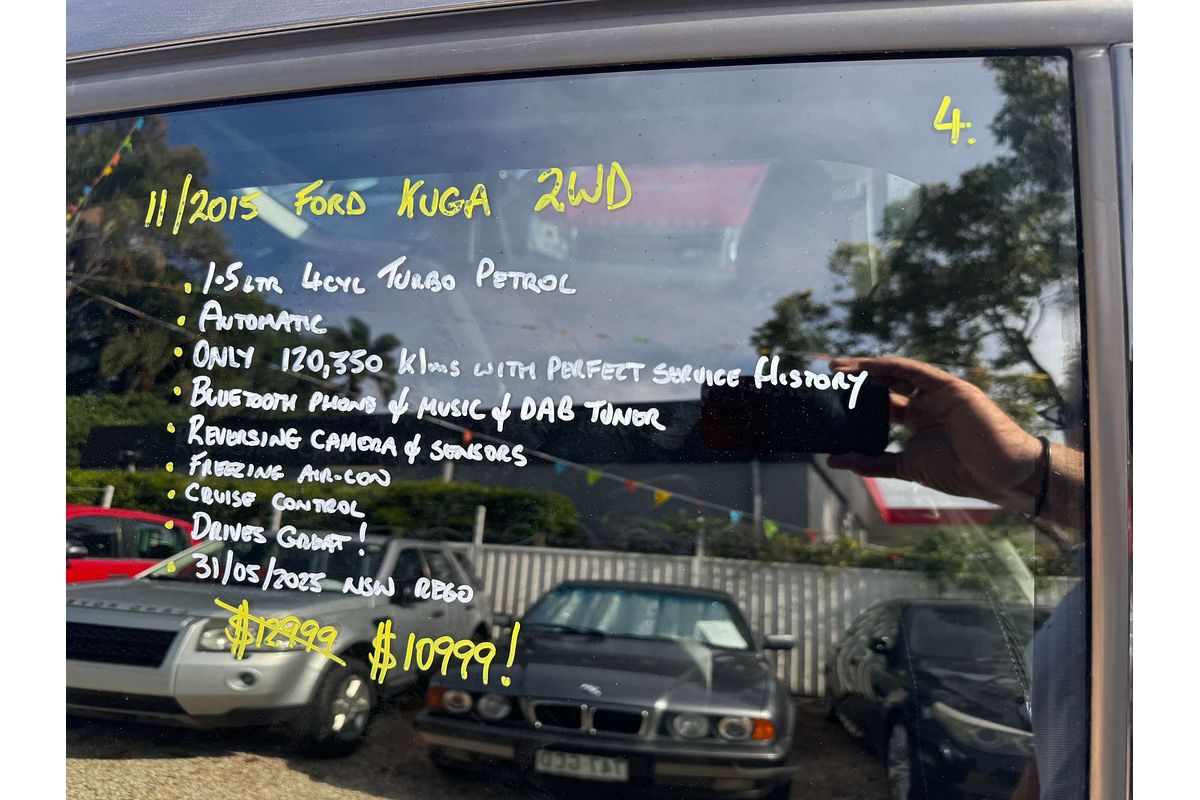 4.
11/2015 FORD KUGA 2WD
• 1.5LTR 4CYL TURBO PETROL
• AUTOMATIC
• ONLY 120,350 Klms WITH PERFECT SERVICE HISTORY
• BLUETOOTH PHONE & MUSIC & DAB TUNER
• REVERSING CAMERA & SENSORS
• FREEZING AIR-CON
• CRUISE CONTROL
• DRIVES GREAT!
• 31/05/2025 NSW REGO
$12999 $10999!